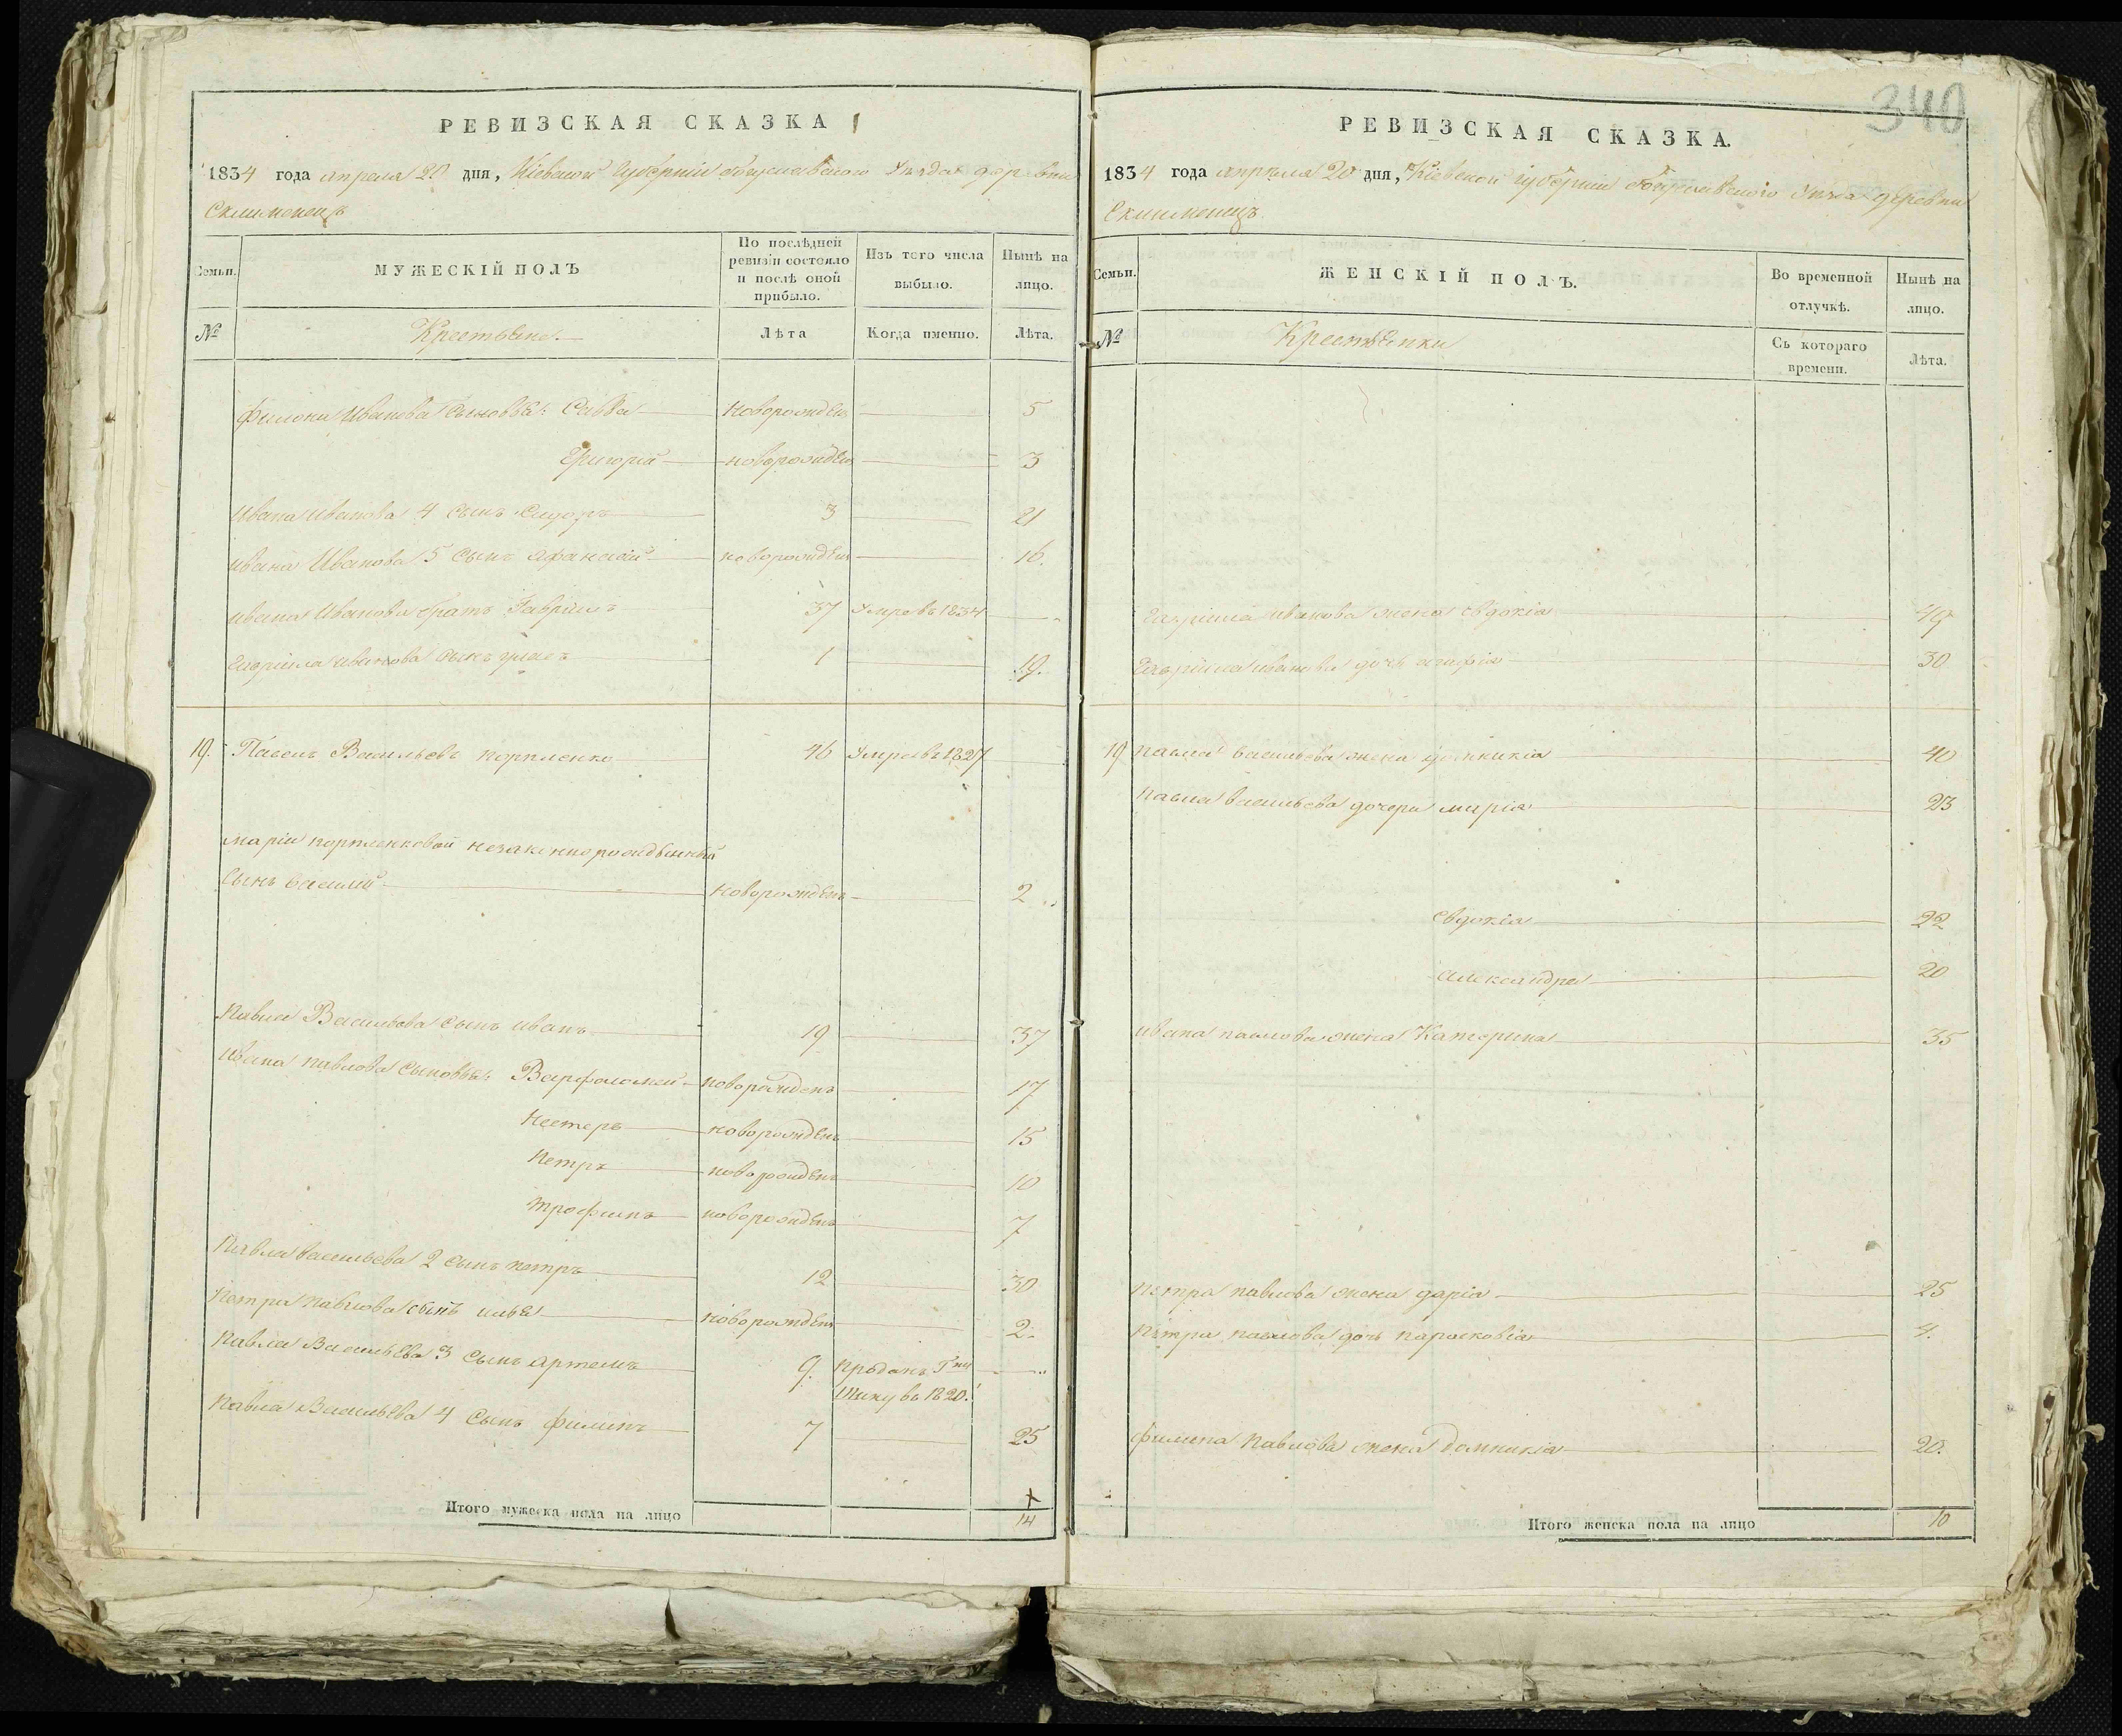 РЕВИЗСКАЯ СКАЗКА
1834 года апреля 20 дня, Кіевской Губерніи Богуславского Уезда деревни
Склименецъ
Семьи. МУЖЕСКІЙ ПОЛЪ По послѣдней ревизіи состояло и послѣ оной прибыло. Изъ того числа выбыло. Нынѣ на лицо.
№ Крестьяне. Лѣта Когда именно. Лѣта.
Филона Иванова сыновья: Савва новорожденъ 5
Григорій новорожденъ 3
Ивана Иванова 4 сынъ Сидоръ 3 21
Ивана Иванова 5 сынъ Афанасій новорожденъ 16.
Ивана Иванова братъ Гавріилъ 37 Умре въ 1834
Гавріила Иванова сынъ 1 19.
19. Павелъ Васильевъ Корпленко 46 Умре въ 1827
Маріи Корпленковой незаконнорожденный
сынъ Василій новорожденъ 2
Павла Васильева сынъ Иванъ 19 37
Ивана Павлова сыновья: Варфоломей новорожденъ 17
Нестеръ новорожденъ 15
Петръ новорожденъ 10
Трофимъ новорожденъ 7
Павла Васильева 2 сынъ Петръ 12 30
Петра Павлова сынъ Илья новорожденъ 2.
Павла Васильева 3 сынъ Артемъ 9. Проданъ Гну
въ 1820.
Павла Васильева 4 сынъ Филипъ 7 25
Итого мужеска пола на лицо 14
340
РЕВИЗСКАЯ СКАЗКА.
1834 года апрѣля 20 дня, Кіевской Губерніи Богуславского Уезда деревни
Склименецъ
Семьи. ЖЕНСКІЙ ПОЛЪ. Во временной отлучкѣ. Нынѣ на лицо.
№ Крестьянки Съ котораго времени. Лѣта.
Гавріила Иванова жена Евдокія 49
Гавріила Иванова дочь Агафія 30
19 Павла Васильева жена Домникія 40
Павла Васильева дочери Марія 23
Евдокія 22
Александра 20
Ивана Павлова жена Катерина 35
Петра Павлова жена Дарія 25
Петра Павлова дочь Парасковія 4.
Филипа Павлова жена Домникія 20.
Итого женска пола на лицо 10